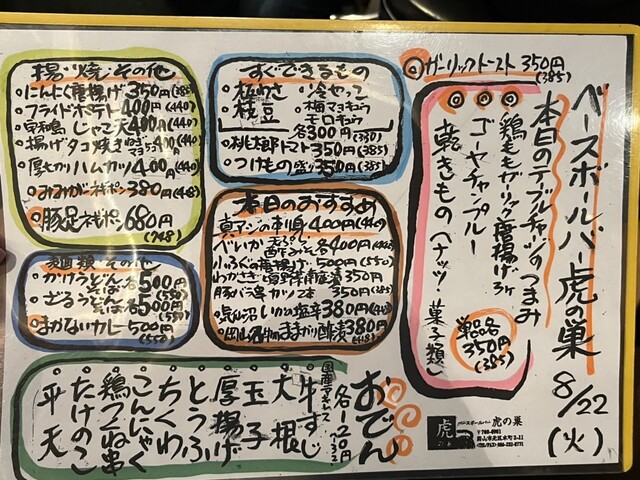 ベースボールバー虎の巣
8/22
(火)
本日のテーブルチャージのつまみ
◎ガーリックトースト 350円
(385)
鶏ももガーリック唐揚げ3ヶ
ゴーヤチャンプルー
乾きもの(ナッツ、菓子類)
単品各
350円
(385)
虎
ベースボールバー 虎の巣
すぐできるもの
・板わさ ・冷やっこ
・枝豆 ・梅マヨキュウ
・モロキュウ
各300円(330)
・桃太郎トマト350円(385)
・つけもの盛り350円(385)
揚・焼・その他
・にんにく唐揚げ350円(385)
・フライドポテト400円(440)
・じゃこ天400円(440)
・揚げタコ焼き 400円(440)
・厚切ハムカツ400円(440)
・みみがネギポン380円(418)
・豚足ネギポン680円
(748)
本日のおすすめ
真アジの刺身400円(440)
小ふぐの唐揚げ500円(550)
わかさぎ南蛮漬350円
豚バラ串カツ2本350円
いかの塩辛380円(418)
岡山名物ままかり酢漬380円
(418)
麺類・その他
・かけうどん・そば各500円
(550)
・ざるうどん・そば各500円
(550)
・まかないカレー500円
(550)
おでん
各120円
牛すじ
大根
玉子
厚揚げ
とうふ
ちくわ
こんにゃく
鶏つくね串
たけのこ
平天